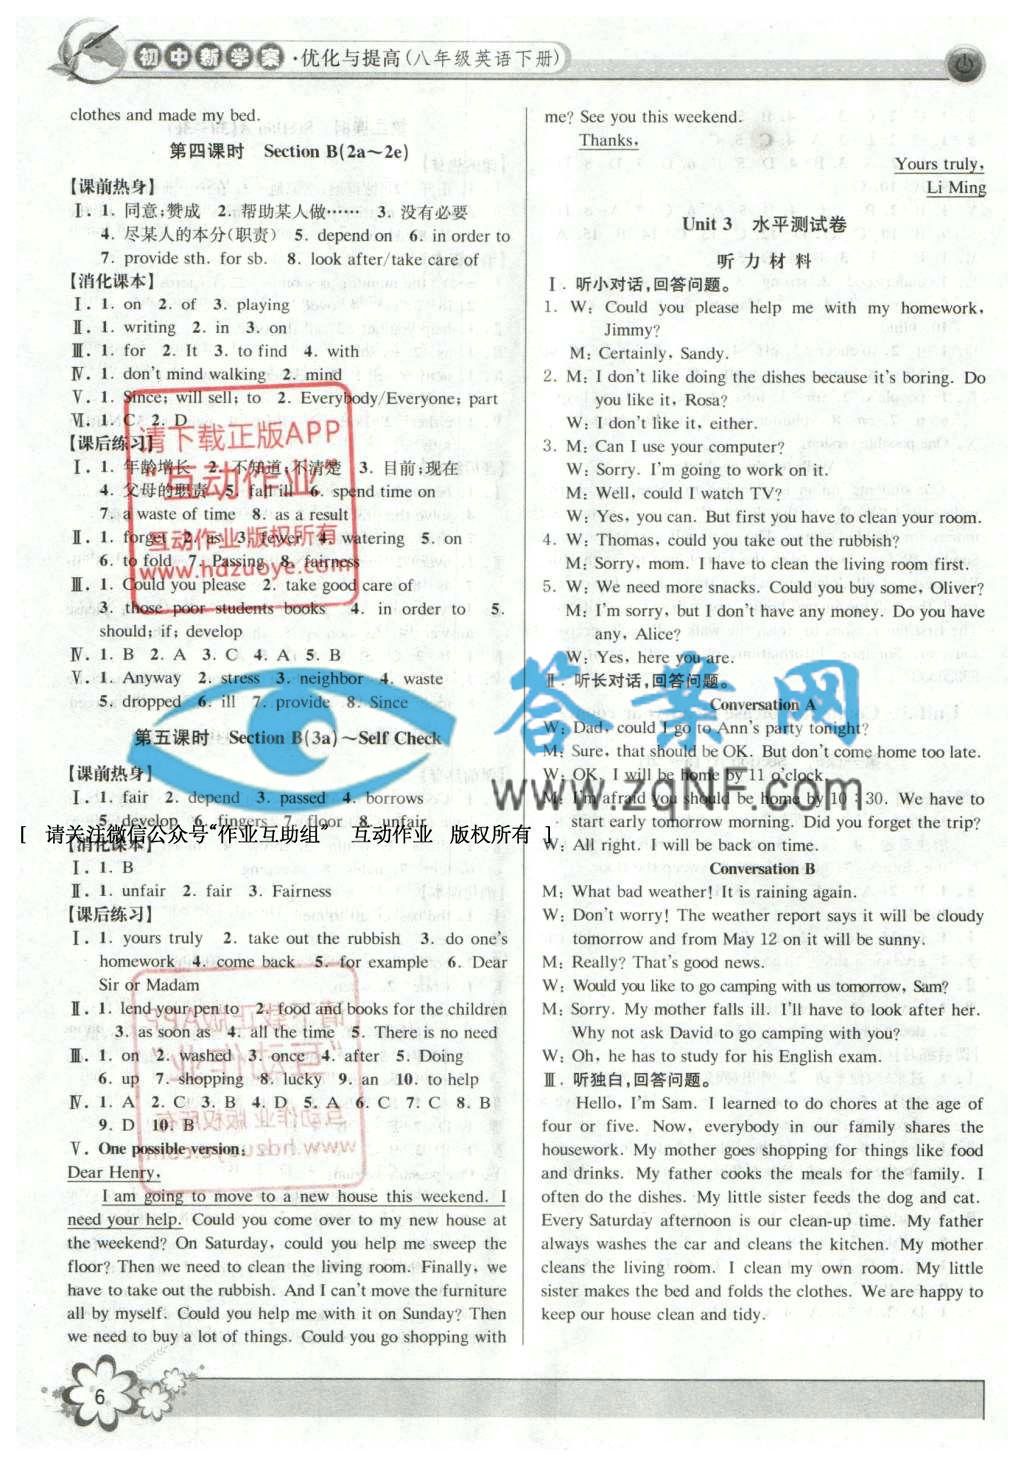 初中新学案·优化与提高(八年级英语下册)
clothes and made my bed.
第四课时 Section B(2a～2e)
【课前热身】
Ⅰ. 1. 同意;赞成 2. 帮助某人做…… 3. 没有必要
4. 尽某人的本分(职责) 5. depend on 6. in order to
7. provide sth. for sb. 8. look after/take care of
【消化课本】
Ⅰ. 1. on 2. of 3. playing
Ⅱ. 1. writing 2. in 3. on
Ⅲ. 1. for 2. It 3. to find 4. with
Ⅳ. 1. don't mind walking 2. mind
Ⅴ. 1. Since; will sell; to 2. Everybody/Everyone; part
Ⅵ. 1. C 2. D
【课后练习】
Ⅰ. 1. 年龄增长 2. 不知道;不清楚 3. 目前;现在
4. 父母的职责 5. fall ill 6. spend time on
7. a waste of time 8. as a result
Ⅱ. 1. forget 2. as 3. fewer 4. watering 5. on
6. to fold 7. Passing 8. fairness
Ⅲ. 1. Could you please 2. take good care of
3. those poor students books 4. in order to 5.
should; if; develop
Ⅳ. 1. B 2. A 3. C 4. A 5. B
Ⅴ. 1. Anyway 2. stress 3. neighbor 4. waste
5. dropped 6. ill 7. provide 8. Since
第五课时 Section B(3a)～Self Check
【课前热身】
Ⅰ. 1. fair 2. depend 3. passed 4. borrows
5. develop 6. fingers 7. floor 8. unfair
[ 请关注微信公众号“作业互助组” 互动作业 版权所有 ]
【消化课本】
Ⅰ. 1. B
Ⅱ. 1. unfair 2. fair 3. Fairness
【课后练习】
Ⅰ. 1. yours truly 2. take out the rubbish 3. do one's
homework 4. come back 5. for example 6. Dear
Sir or Madam
Ⅱ. 1. lend your pen to 2. food and books for the children
3. as soon as 4. all the time 5. There is no need
Ⅲ. 1. on 2. washed 3. once 4. after 5. Doing
6. up 7. shopping 8. lucky 9. an 10. to help
Ⅳ. 1. A 2. C 3. B 4. D 5. A 6. C 7. C 8. B
9. D 10. B
Ⅴ. One possible version:
Dear Henry,
I am going to move to a new house this weekend. I
need your help. Could you come over to my new house at
the weekend? On Saturday, could you help me sweep the
floor? Then we need to clean the living room. Finally, we
have to take out the rubbish. And I can't move the furniture
all by myself. Could you help me with it on Sunday? Then
we need to buy a lot of things. Could you go shopping with
me? See you this weekend.
Thanks,
Yours truly,
Li Ming
Unit 3 水平测试卷
听力材料
Ⅰ. 听小对话,回答问题。
1. W: Could you please help me with my homework,
Jimmy?
M: Certainly, Sandy.
2. M: I don't like doing the dishes because it's boring. Do
you like it, Rosa?
W: I don't like it, either.
3. M: Can I use your computer?
W: Sorry. I'm going to work on it.
M: Well, could I watch TV?
W: Yes, you can. But first you have to clean your room.
4. W: Thomas, could you take out the rubbish?
M: Sorry, mom. I have to clean the living room first.
5. W: We need more snacks. Could you buy some, Oliver?
M: I'm sorry, but I don't have any money. Do you have
any, Alice?
W: Yes, here you are.
Ⅱ. 听长对话,回答问题。
Conversation A
W: Dad, could I go to Ann's party tonight?
M: Sure, that should be OK. But don't come home too late.
W: OK. I will be home by 11 o'clock.
M: I'm afraid you should be home by 10:30. We have to
start early tomorrow morning. Did you forget the trip?
W: All right. I will be back on time.
Conversation B
M: What bad weather! It is raining again.
W: Don't worry! The weather report says it will be cloudy
tomorrow and from May 12 on it will be sunny.
M: Really? That's good news.
W: Would you like to go camping with us tomorrow, Sam?
M: Sorry. My mother falls ill. I'll have to look after her.
Why not ask David to go camping with you?
W: Oh, he has to study for his English exam.
Ⅲ. 听独白,回答问题。
Hello, I'm Sam. I learned to do chores at the age of
four or five. Now, everybody in our family shares the
housework. My mother goes shopping for things like food
and drinks. My father cooks the meals for the family. I
often do the dishes. My little sister feeds the dog and cat.
Every Saturday afternoon is our clean-up time. My father
always washes the car and cleans the kitchen. My mother
cleans the living room. I clean my own room. My little
sister makes the bed and folds the clothes. We are happy to
keep our house clean and tidy.
请下载正版APP
“互动作业”
互动作业版权所有
www.hdzuoye.com
答案网
www.zqnf.com
6